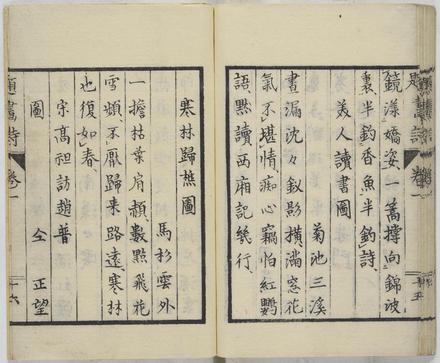 題畫詩 卷一 十五
鏡漾嬌姿一篙撐向錦波
裏半鈎香魚半鈎詩
美人讀書圖
菊池三溪
晝漏沈々釵影橫滿窓花
氣不堪情痴心竊怕紅鸚
語默讀西廂記幾行
寒林歸樵圖
馬杉雲外
一擔枯葉肩頳數點飛花
雪頻不厭歸來路遠寒林
也復如春
宋高祖訪趙普
圖
仝正望
題畫詩 卷一 十六